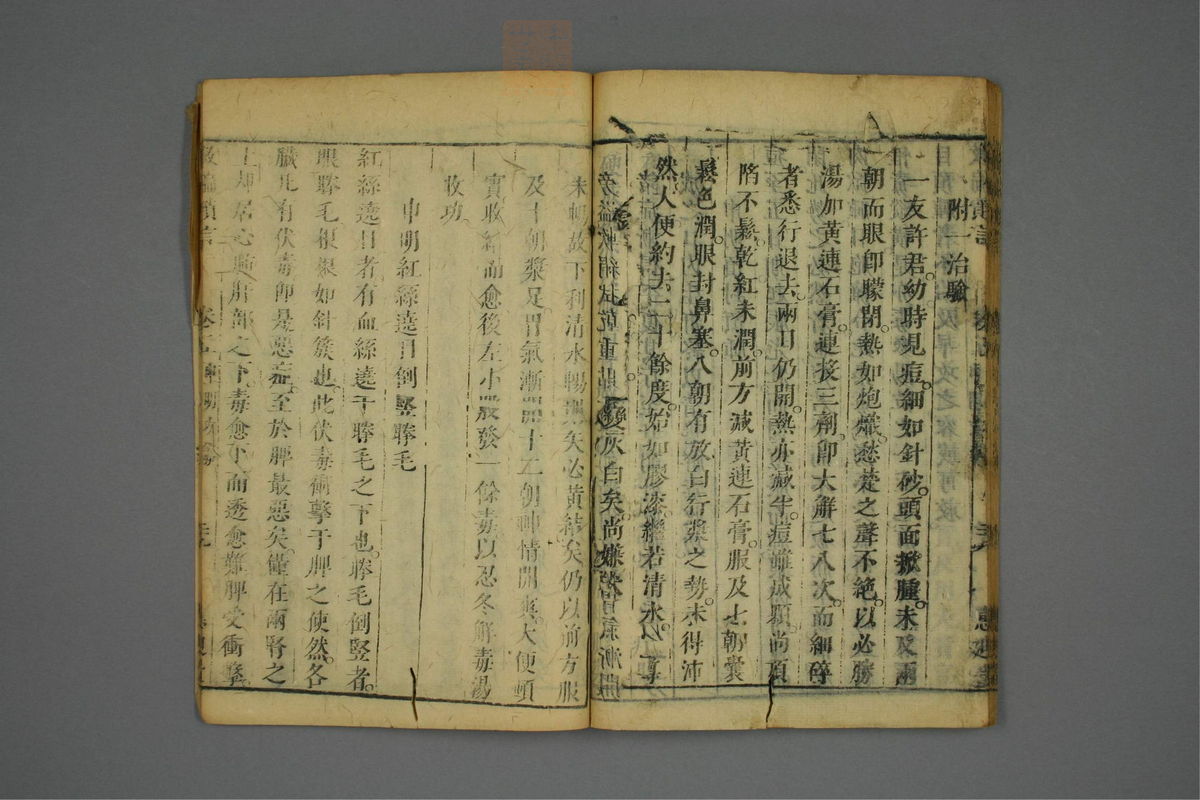 附一治驗
一友許君幼時見痘細如針砂頭面掀腫未及兩
朝而眼卽朦閉熱如炮爍愁楚之聲不絕以必勝
湯加黃連石膏連接三劑卽大解七八次而細碎
者悉行退去兩日仍開熱亦減半痘雖成顆尚頂
陷不鬆乾紅未潤前方減黃連石膏服及七朝囊
鬆色潤眼封鼻塞八朝有放白行漿之勢未得沛
然人便約去二十餘度始如膠漆繼若清水
乾 灰白矣尚嫌
未 故下利清水 矣必黃結矣仍以前方服
及十朝漿足胃氣漸 十二朝神情開爽大便頓
實收結而愈後左小 發一餘毒以忍冬解毒湯
收功
申明紅絲遶目倒竪睫毛
紅絲遶目者有血絲遶于睫毛之下也睫毛倒竪者
眼睫毛根根如針簇也此伏毒衝擊于脾之使然各
臟凡有伏毒卽是惡症至於脾最惡矣僅在兩腎之
上却居心 部之下毒愈下而透愈難脾受衝擊